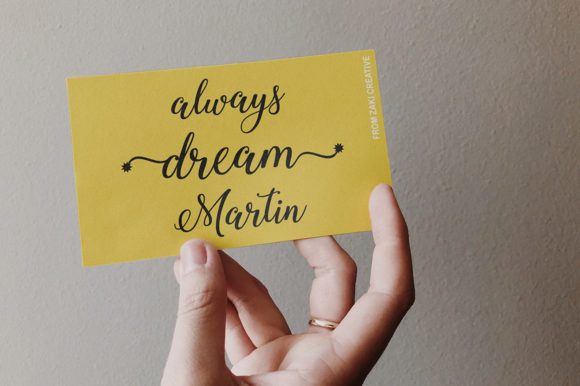 always
dream
Martin
FROM ZAKI CREATIVE